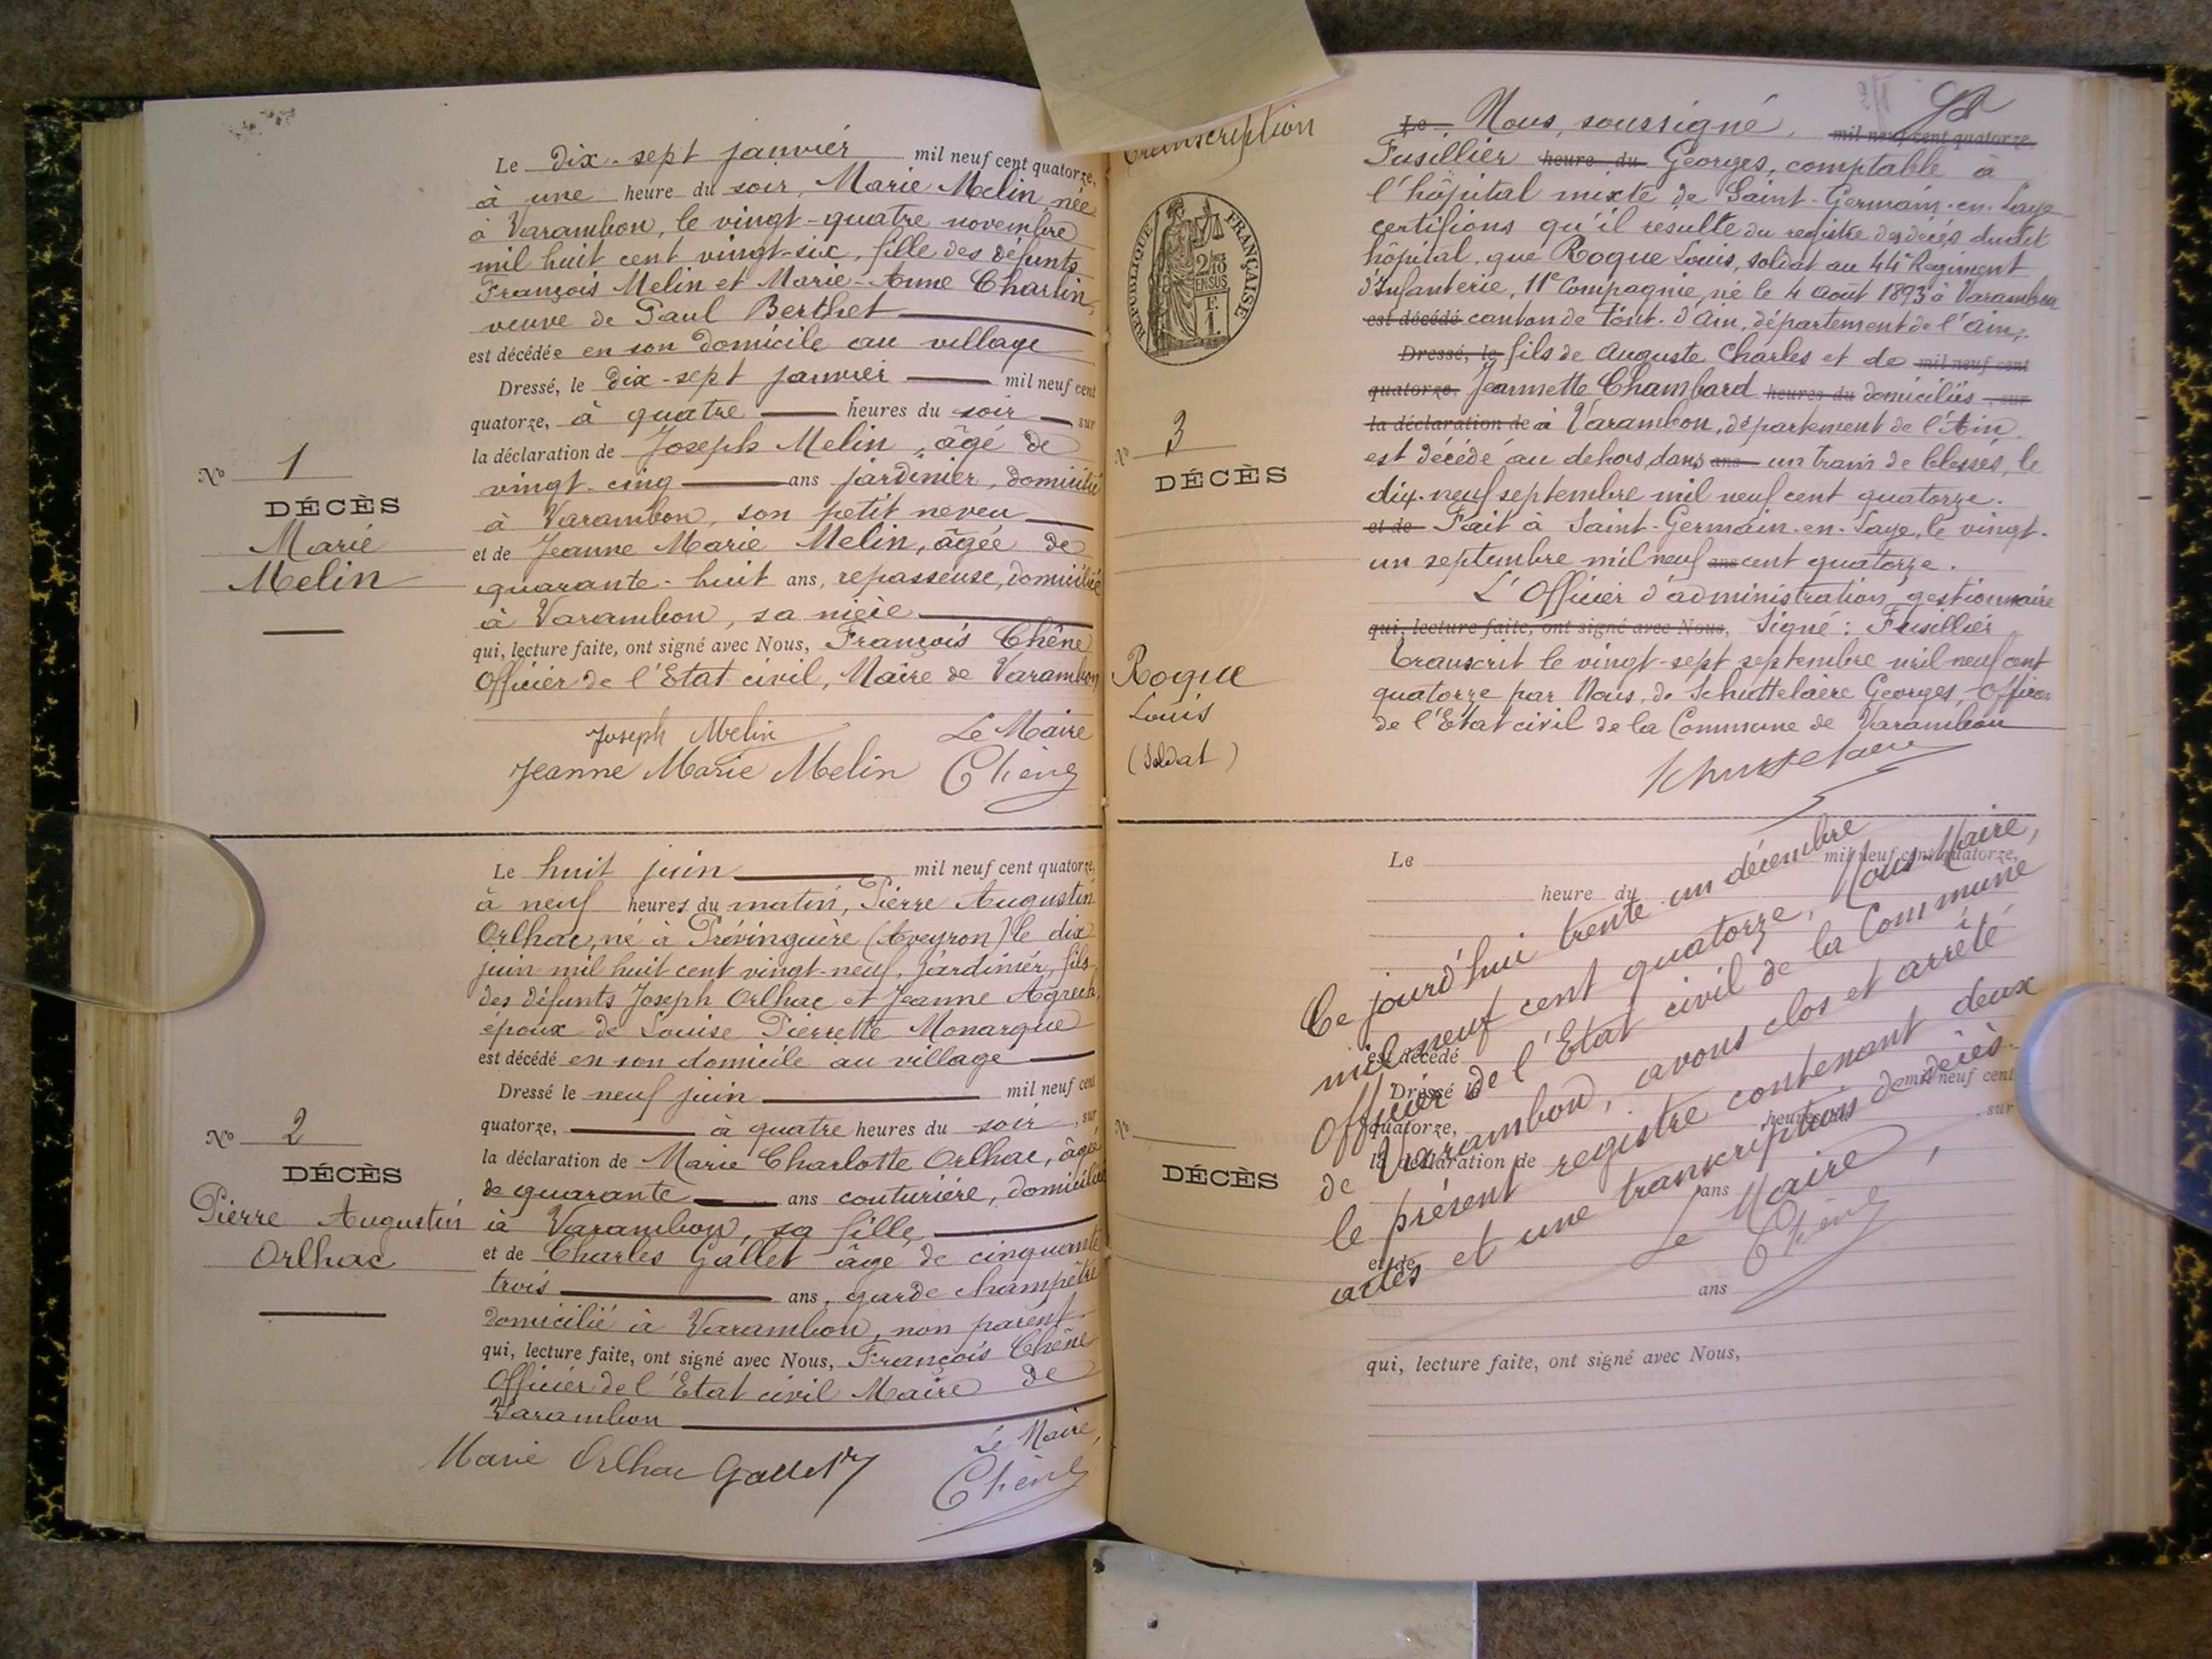 Le Dix-sept janvier mil neuf cent quatorze,
à une heure du soir, Marie Melin, née
à Varambon, le vingt-quatre novembre
mil huit cent vingt-six, fille des défunts
François Melin et Marie-Anne Charlin,
veuve de Paul Berthet
est décédée en son domicile au village
Dressé, le Dix-sept janvier mil neuf cent
quatorze, à quatre heures du soir sur
la déclaration de Joseph Melin, âgé de
vingt-cinq ans jardinier, domicilié
à Varambon, son petit neveu
et de Jeanne Marie Melin, âgée de
quarante-huit ans, repasseuse, domiciliée
à Varambon, sa nièce
qui, lecture faite, ont signé avec Nous, François Chêne
Officier de l'Etat civil, Maire de Varambon
Joseph Melin Le Maire
Jeanne Marie Melin Chêne
No 1
DÉCÈS
Marie
Melin
Le huit juin mil neuf cent quatorze,
à neuf heures du matin, Pierre Augustin
Orlhac, né à Prévinquière (Aveyron) le dix
juin mil huit cent vingt-neuf, jardinier, fils
des défunts Joseph Orlhac et Jeanne
époux de Louise Pierrette Monarque
est décédé en son domicile au village
Dressé le neuf juin mil neuf cent
quatorze, à quatre heures du soir, sur
la déclaration de Marie Charlotte Orlhac, âgée
de quarante ans couturière, domiciliée
à Varambon, sa fille,
et de Charles Gallet âgé de cinquante
trois ans, garde champêtre
domicilié à Varambon, non parent
qui, lecture faite, ont signé avec Nous, François Chêne
Officier de l'Etat civil Maire de
Varambon
Marie Orlhac Gallet Le Maire,
Chêne
No 2
DÉCÈS
Pierre Augustin
Orlhac
Transcription
REPUBLIQUE FRANÇAISE
2/10
EN SUS
F.
1.
No 3
DÉCÈS
Roque
Louis
(Soldat)
Le Nous, soussigné, mil neuf cent quatorze,
Fusillier heure du Georges, comptable à
l'hôpital mixte de Saint-Germain-en-Laye
certifions qu'il résulte du registre des décès dudit
hôpital, que Roque Louis, soldat au 44e Régiment
d'Infanterie, 11e Compagnie, né le 4 Août 1893 à Varambon
est décédé canton de Pont-d'Ain, département de l'Ain,
Dressé, le fils de Auguste Charles et de mil neuf cent
quatorze, Jeannette Chambard heures du domiciliés sur
la déclaration de à Varambon, département de l'Ain
est décédé au dehors, dans ans un train de blessés, le
dix-neuf septembre mil neuf cent quatorze.
et de Fait à Saint-Germain-en-Laye, le vingt-
un septembre mil neuf ans cent quatorze.
L'Officier d'administration gestionnaire
qui, lecture faite, ont signé avec Nous, Signé : Fusillier
Transcrit le vingt-sept septembre mil neuf cent
quatorze par Nous, de Schuttelaère Georges, Officier
de l'Etat civil de la Commune de Varambon
Schuttelaere
Le mil neuf cent quatorze,
heure du
est décédé
Dressé le mil neuf cent
quatorze, heures du sur
la déclaration de
ans
et de
ans
qui, lecture faite, ont signé avec Nous,
No
DÉCÈS
Ce jourd'hui trente un décembre
mil neuf cent quatorze, Nous Maire,
Officier de l'Etat civil de la Commune
de Varambon, avons clos et arrêté
le présent registre contenant deux
actes et une transcription de décès.
Le Maire,
Chêne